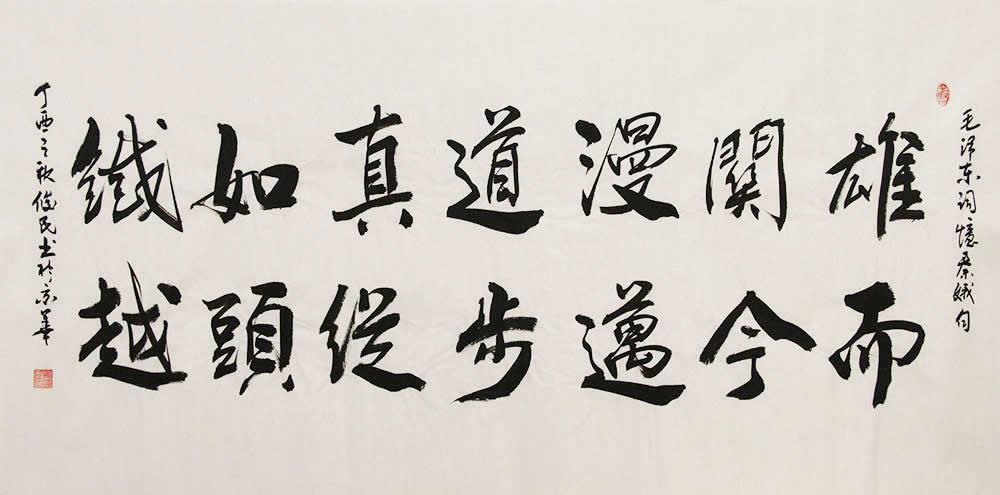 毛泽东词憶秦娥句
雄關漫道真如鐵
而今邁步從頭越
丁酉之秋俊民书於京華